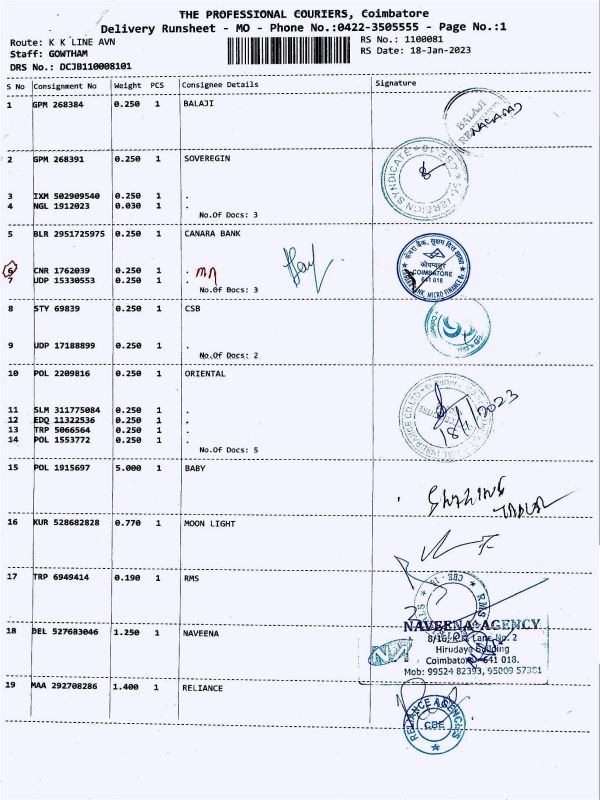 THE PROFESSIONAL COURIERS, Coimbatore
Delivery Runsheet - MO - Phone No.:0422-3505555 - Page No.:1
Route: K K LINE AVN
RS No.: 1100081
Staff: GOWTHAM
RS Date: 18-Jan-2023
DRS No.: DCJB110008101
S No Consignment No Weight PCS Consignee Details Signature
1 GPM 268384 0.250 1 BALAJI
BALAJI
NAGARAJ
2 GPM 268391 0.250 1 SOVEREGIN
3 IXM 502909540 0.250 1 .
4 NGL 1912023 0.030 1 .
No.Of Docs: 3
5 BLR 2951725975 0.250 1 CANARA BANK
COIMBATORE
641 018
6 CNR 1762039 0.250 1 .
7 UDP 15330553 0.250 1 .
No.Of Docs: 3
8 STY 69839 0.250 1 CSB
9 UDP 17188899 0.250 1 .
No.Of Docs: 2
10 POL 2209816 0.250 1 ORIENTAL
18/1/2023
11 SLM 311775084 0.250 1 .
12 EDQ 11322536 0.250 1 .
13 TRP 5066564 0.250 1 .
14 POL 1553772 0.250 1 .
No.Of Docs: 5
15 POL 1915697 5.000 1 BABY
16 KUR 528682828 0.770 1 MOON LIGHT
17 TRP 6949414 0.190 1 RMS
18 DEL 527683046 1.250 1 NAVEENA
NAVEENA AGENCY
8/16, K.K. Lane No. 2
Hirudaya Building
Coimbatore - 641 018.
Mob: 99524 82393, 95009 57381
19 MAA 292708286 1.400 1 RELIANCE
RELIANCE AGENCIES
CBE